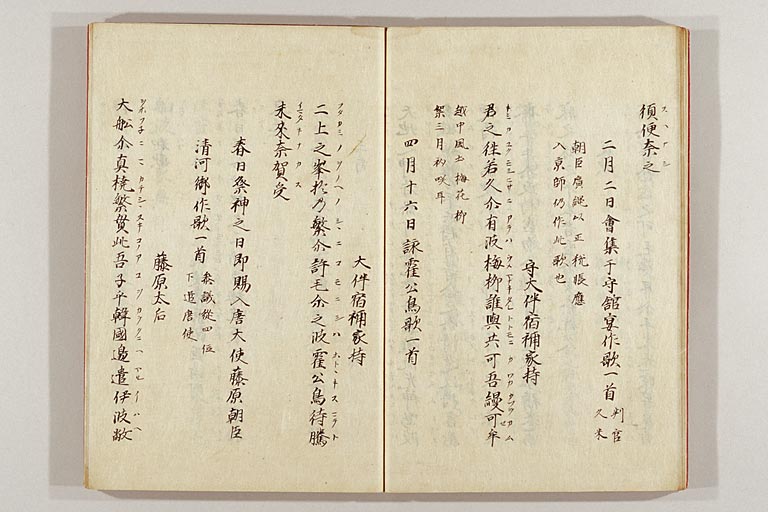 須便奈之
二月二日會集于守舘宴作歌一首 判官久米
朝臣廣縄以正税帳應
入京師仍作此歌也
守大伴宿祢家持
君之徃若久尓有波梅柳誰與共可吾縵可牟
越中風土梅花柳
絮三月初咲耳
四月十六日詠霍公鳥歌一首
大伴宿祢家持
二上之峯於乃繁尓許毛尓之波霍公鳥待騰
未來奈賀受
春日祭神之日即賜入唐大使藤原朝臣
清河卿作歌一首 参議從四位下遣唐使
藤原太后
大舩尓真梶繁貫此吾子乎韓國邊遣伊波敝